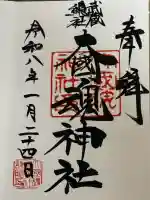 奉拝
武蔵
総社
大國魂神社
令和八年一月二十四日